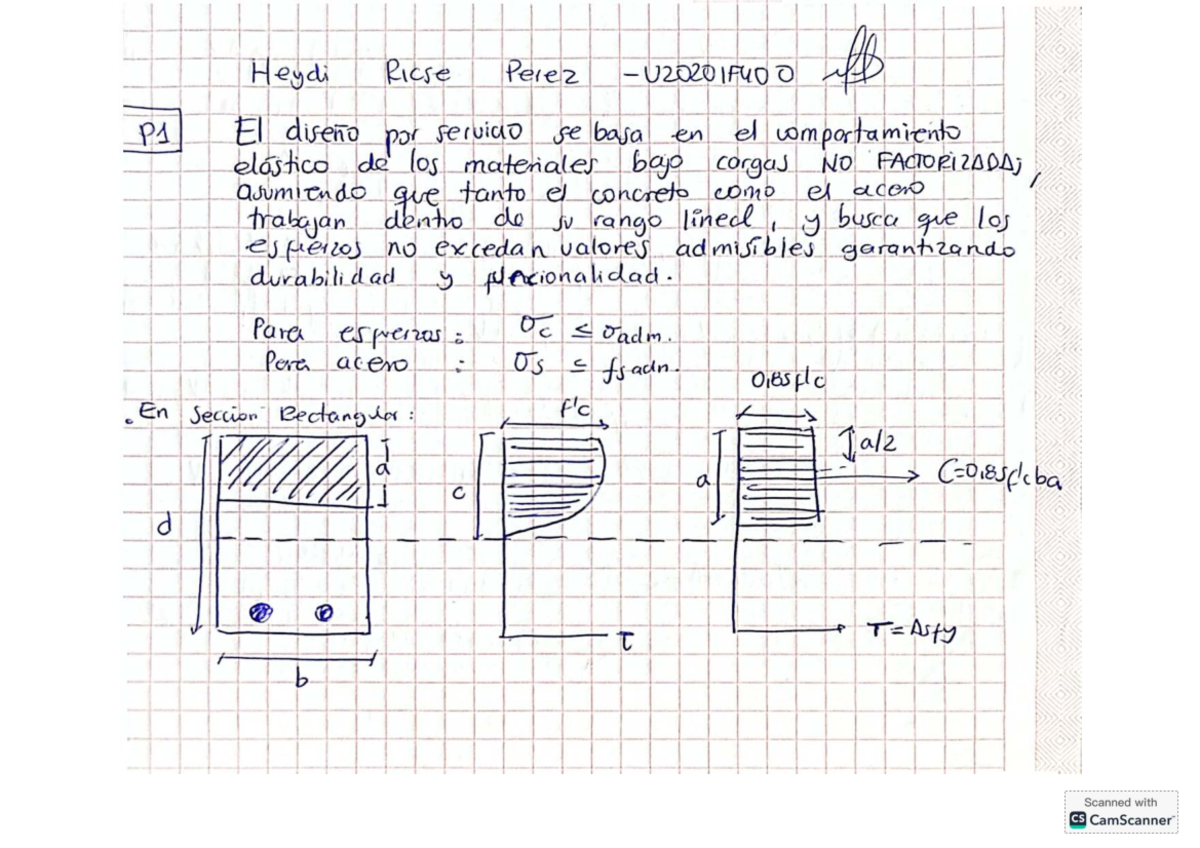 Heydi Ricse Perez - U20201F400
P1
El diseño por servicio se basa en el comportamiento
elástico de los materiales bajo cargas NO FACTORIZADAS,
asumiendo que tanto el concreto como el acero
trabajan dentro de su rango lineal, y busca que los
esfuerzos no excedan valores admisibles garantizando
durabilidad y funcionalidad.
Para esfuerzos : σc ≤ σadm.
Para acero : σs ≤ fsadm.
. En Seccion Rectangular :
f'c
0,85f'c
a
d
b
c
a
a/2
C=0,85f'cba
T
T=Asfy
Scanned with
CS CamScanner